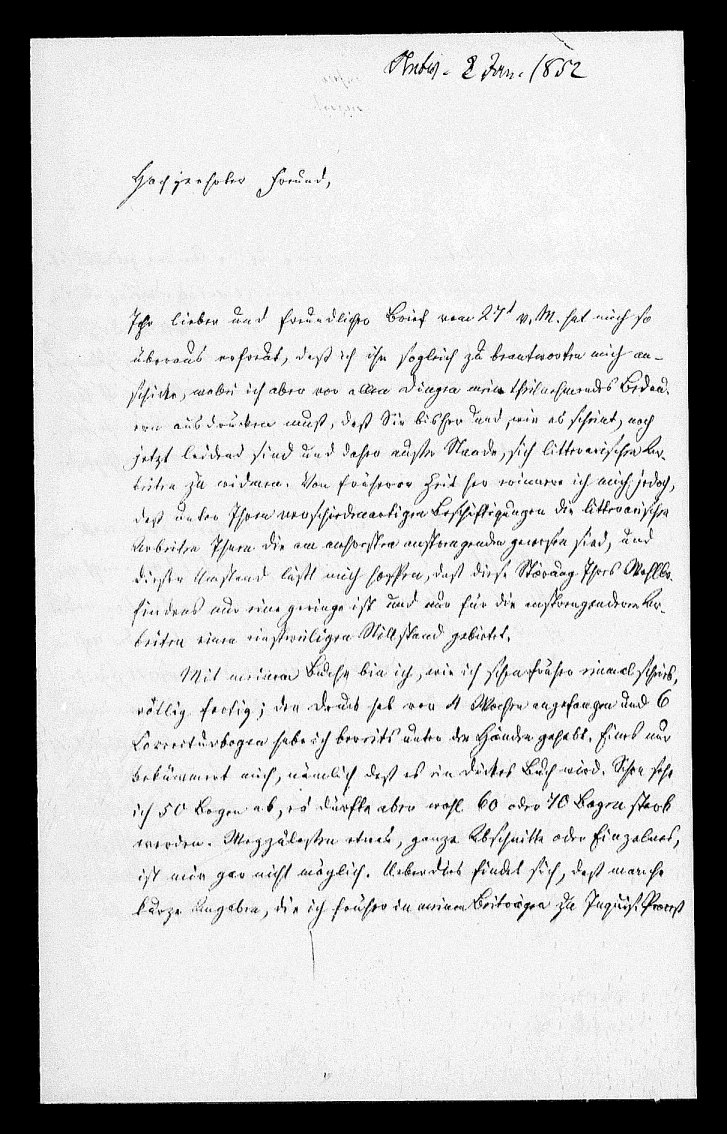 2 Jan. 1852
Hochgeehrter Freund,
Ihr lieber und freundlicher Brief vom 27t v. M. hat mich so
überaus erfreut, daß ich ihn sogleich zu beantworten mich an-
schicke, wobei ich aber vor allen Dingen mein theilnehmendes Bedau-
ern ausdrücken muß, daß Sie bisher und, wie es scheint, noch
jetzt leidend sind und daher außer Stande, sich litterarischen Ar-
beiten zu widmen. Von früherer Zeit her erinnere ich mich jedoch,
daß unter Ihren verschiedenartigen Beschäftigungen die litterarischen
Arbeiten Ihnen die am anstrengenden gewesen sind, und
dieser Umstand läßt mich hoffen, daß diese Störung Ihres Wohlbe-
findens nur eine geringe ist und nur für die anstrengenderen Ar-
beiten einen einstweiligen Stillstand gebietet.
Mit meinem Buche bin ich, wie ich schon früher einmal schrieb,
völlig fertig; der Druck hat vor 4 Wochen angefangen und 6
Correcturbogen habe ich bereits unter den Händen gehabt. Eines nur
bekümmert mich, nämlich daß es ein dickes Buch wird. Schon sehe
ich 50 Bogen ab, es dürfte aber wohl 60 oder 70 Bogen stark
werden. Wegzulassen etwas, ganze Abschnitte oder Einzelnes,
ist mir gar nicht möglich. Ueberdies findet sich, daß manche
kurze Angaben, die ich früher in meinen Beiträgen zu Inquis. Proceß